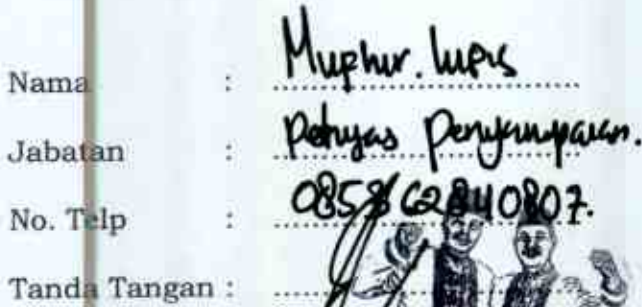 Nama :
Jabatan : Petugas Penyampaian.
No. Telp : 085862840807.
Tanda Tangan :